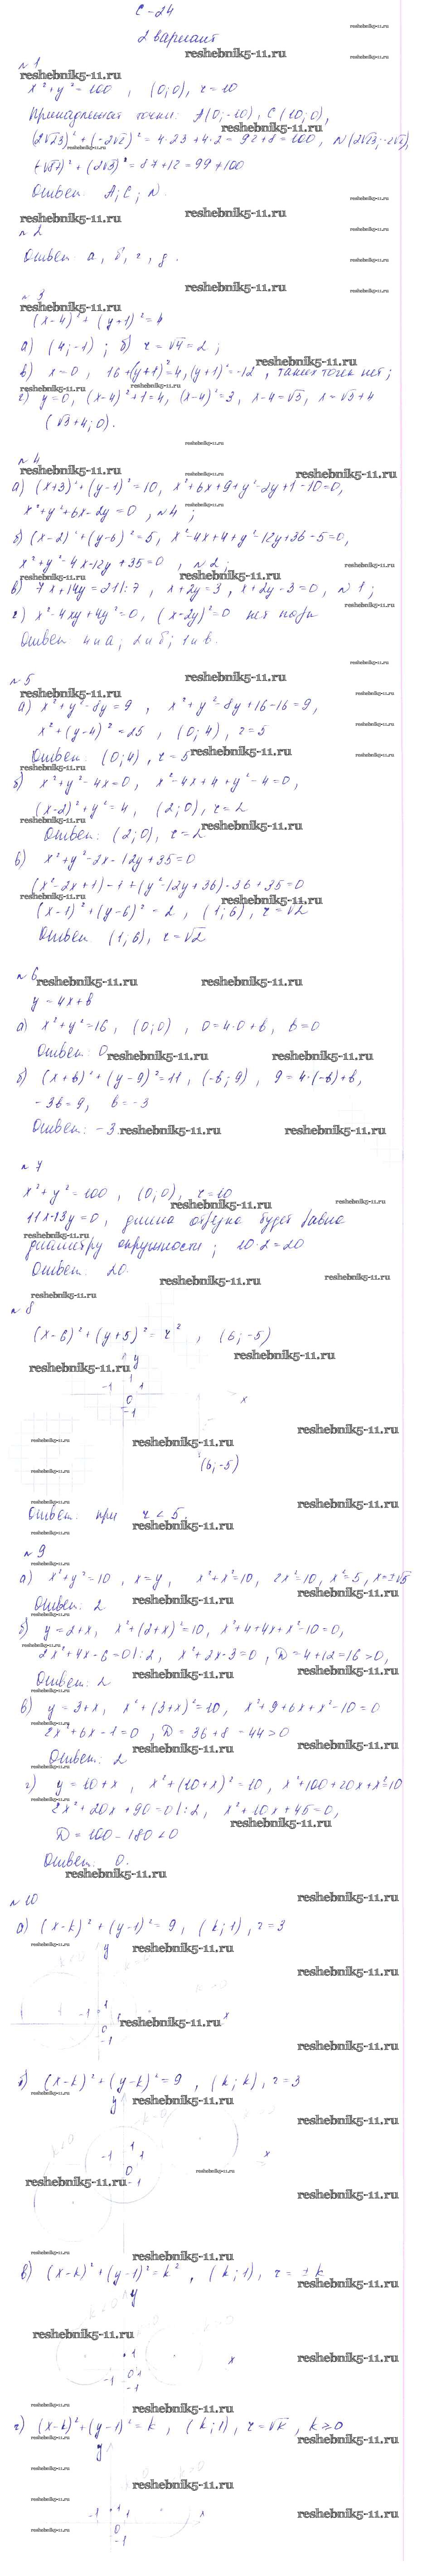 С-24
2 вариант
№1
x²+y²=100, (0;0), r=10
Принадлежат точки: A(0;-10), C(10;0),
(2√23)²+(-2√2)²=4·23+4·2=92+8=100, N(2√23;-2√2),
(-√87)²+(2√3)²=87+12=99≠100
Ответ: A; C; N.
№2
Ответ: а, б, г, д.
№3
(x-4)²+(y+1)²=4
а) (4;-1); б) r=√4=2;
в) x=0, 16+(y+1)²=4, (y+1)²=-12, таких точек нет;
г) y=0, (x-4)²+1=4, (x-4)²=3, x-4=√3, x=√3+4
(√3+4;0).
№4
а) (x+3)²+(y-1)²=10, x²+6x+9+y²-2y+1-10=0,
x²+y²+6x-2y=0, №4;
б) (x-2)²+(y-6)²=5, x²-4x+4+y²-12y+36-5=0,
x²+y²-4x-12y+35=0, №2;
в) 7x+14y=21|:7, x+2y=3, x+2y-3=0, №1;
г) x²-4xy+4y²=0, (x-2y)²=0 нет пары
Ответ: 4 и а; 2 и б; 1 и в.
№5
а) x²+y²-8y=9, x²+y²-8y+16-16=9,
x²+(y-4)²=25, (0;4), r=5
Ответ: (0;4), r=5
б) x²+y²-4x=0, x²-4x+4+y²-4=0,
(x-2)²+y²=4, (2;0), r=2
Ответ: (2;0), r=2
в) x²+y²-2x-12y+35=0
(x²-2x+1)-1+(y²-12y+36)-36+35=0
(x-1)²+(y-6)²=2, (1;6), r=√2
Ответ (1;6), r=√2
№6
y=4x+b
а) x²+y²=16, (0;0), 0=4·0+b, b=0
Ответ: 0
б) (x+b)²+(y-9)²=11, (-b;9), 9=4·(-b)+b,
-3b=9, b=-3
Ответ: -3
№7
x²+y²=100, (0;0), r=10
11x-13y=0, длина отрезка будет равна
диаметру окружности; 10·2=20
Ответ: 20.
№8
(x-6)²+(y+5)²=r², (6;-5)
y
-1 1 1
0 x
-1
(6;-5)
Ответ: при r<5.
№9
а) x²+y²=10, x=y, x²+x²=10, 2x²=10, x²=5, x=±√5
Ответ: 2
б) y=2+x, x²+(2+x)²=10, x²+4+4x+x²-10=0,
2x²+4x-6=0|:2, x²+2x-3=0, D=4+12=16>0,
Ответ: 2
в) y=3+x, x²+(3+x)²=10, x²+9+6x+x²-10=0
2x²+6x-1=0, D=36+8=44>0
Ответ: 2
г) y=10+x, x²+(10+x)²=10, x²+100+20x+x²=10
2x²+20x+90=0|:2, x²+10x+45=0,
D=100-180<0
Ответ: 0.
№10
а) (x-k)²+(y-1)²=9, (k;1), r=3
y
-1 1 x
0
-1
б) (x-k)²+(y-k)²=9, (k;k), r=3
y
-1 1 1 x
0
-1
в) (x-k)²+(y-1)²=k², (k;1), r=±k
y
1 x
-1 0 1
-1
г) (x-k)²+(y-1)²=k, (k;1), r=√k, k≥0
y
-1 1 1 x
0
-1
reshebnik5-11.ru